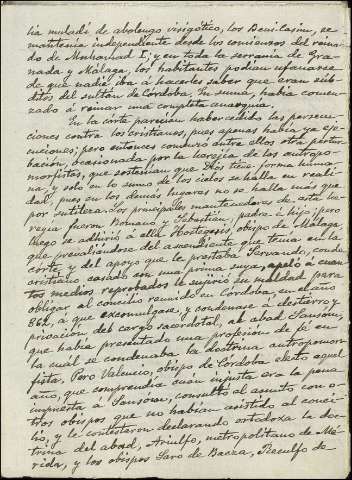 lia muladí de abolengo visigótico, los Beni-Casim, se
mantenía independiente desde los comienzos del reina-
do de Mohamad I; y en toda la serranía de Gra-
nada y Málaga, los habitantes podían ufanarse
de que nadie iba á hacerles saber que eran súb-
ditos del sultán de Córdoba. En suma, había comen-
zado á reinar una completa anarquía.
En la corte parecían haber cedido las persecu-
ciones contra los cristianos, pues apenas había ya eje-
cuciones; pero entonces comenzó entre ellos otra pertur-
bación, ocasionada por la herejía de los antropo-
morfistas, que sostenían que Dios tiene forma huma-
na, y solo en lo sumo de los cielos se halla en reali-
dad, pues en los demás lugares no se halla más que
por sutileza. Los principales mantenedores de esta he-
regía fueron Romano y Sebastián, padre é hijo; pero
luego se adhirió á ella Hostegesis, obispo de Málaga,
que prevaliéndose del ascendiente que tenía en la
corte y del apoyo que le prestaba Servando, conde
cristiano casado con una prima suya, apeló á cuan-
tos medios reprobados le sugirió su maldad para
obligar al concilio reunido en Córdoba, en el año
862, á que excomulgase, y condenase á destierro y
privación del cargo sacerdotal, al abad Sansón,
que había presentado una profesión de fé en
la cual se condenaba la doctrina antropomor-
fista. Pero Valencio, obispo de Córdoba electo aquel
año, que comprendía cuán injusta era la pena
impuesta á Sansón, consultó el asunto con o-
tros obispos que no habían asistido al conci-
lio, y le contestaron declarando ortodoxa la doc-
trina del abad, Ariulfo, metropolitano de Mé-
rida, y los obispos Saro de Baeza, Recculfo de